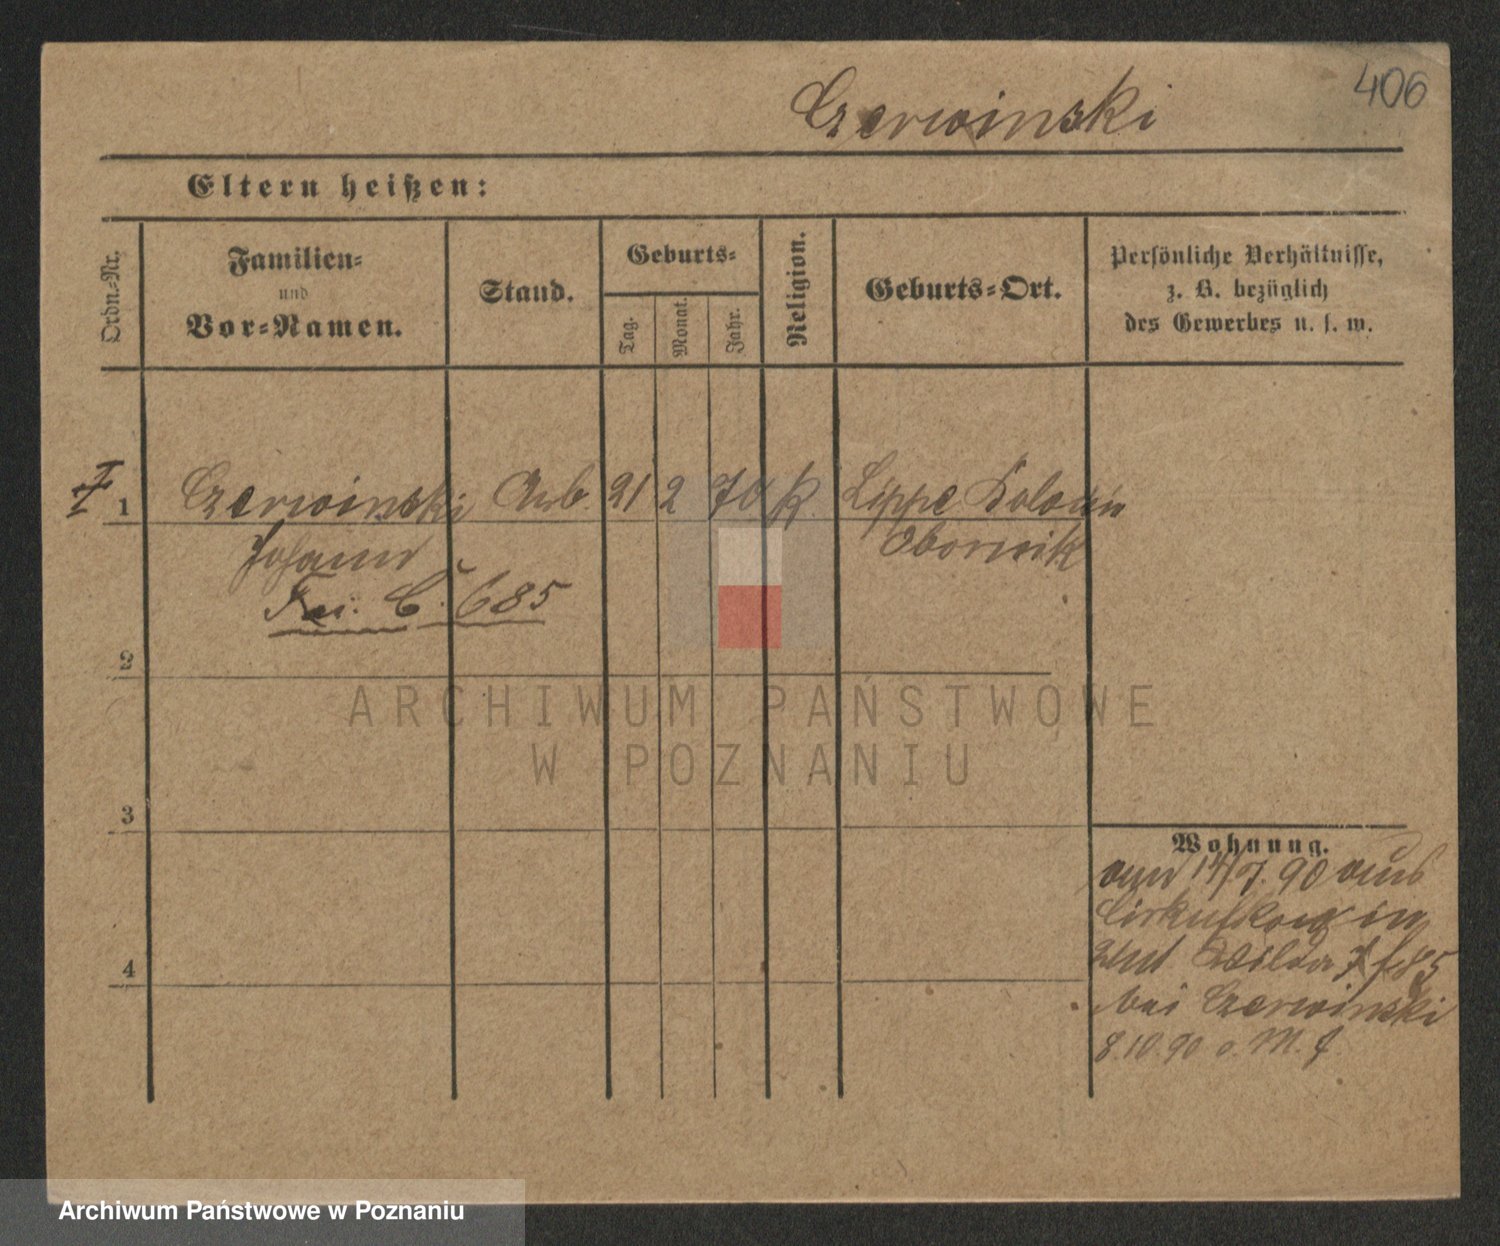 406
Czerwinski
Eltern heißen:
Ordn.-Nr.
Familien-
und
Vor-Namen.
Stand.
Geburts-
Tag.
Monat.
Jahr.
Religion.
Geburts-Ort.
Persönliche Verhältnisse,
z. B. bezüglich
des Gewerbes u. s. w.
1 Czerwinski Arb. 21 2 70 K. Lippe
Johann Obornik
C. 685
2
3
4
ARCHIWUM PAŃSTWOWE
W POZNANIU
Wohnung.
14/7. 90 aus
in
Wilda
bei Czerwinski
8.10.90 o. M.
Archiwum Państwowe w Poznaniu